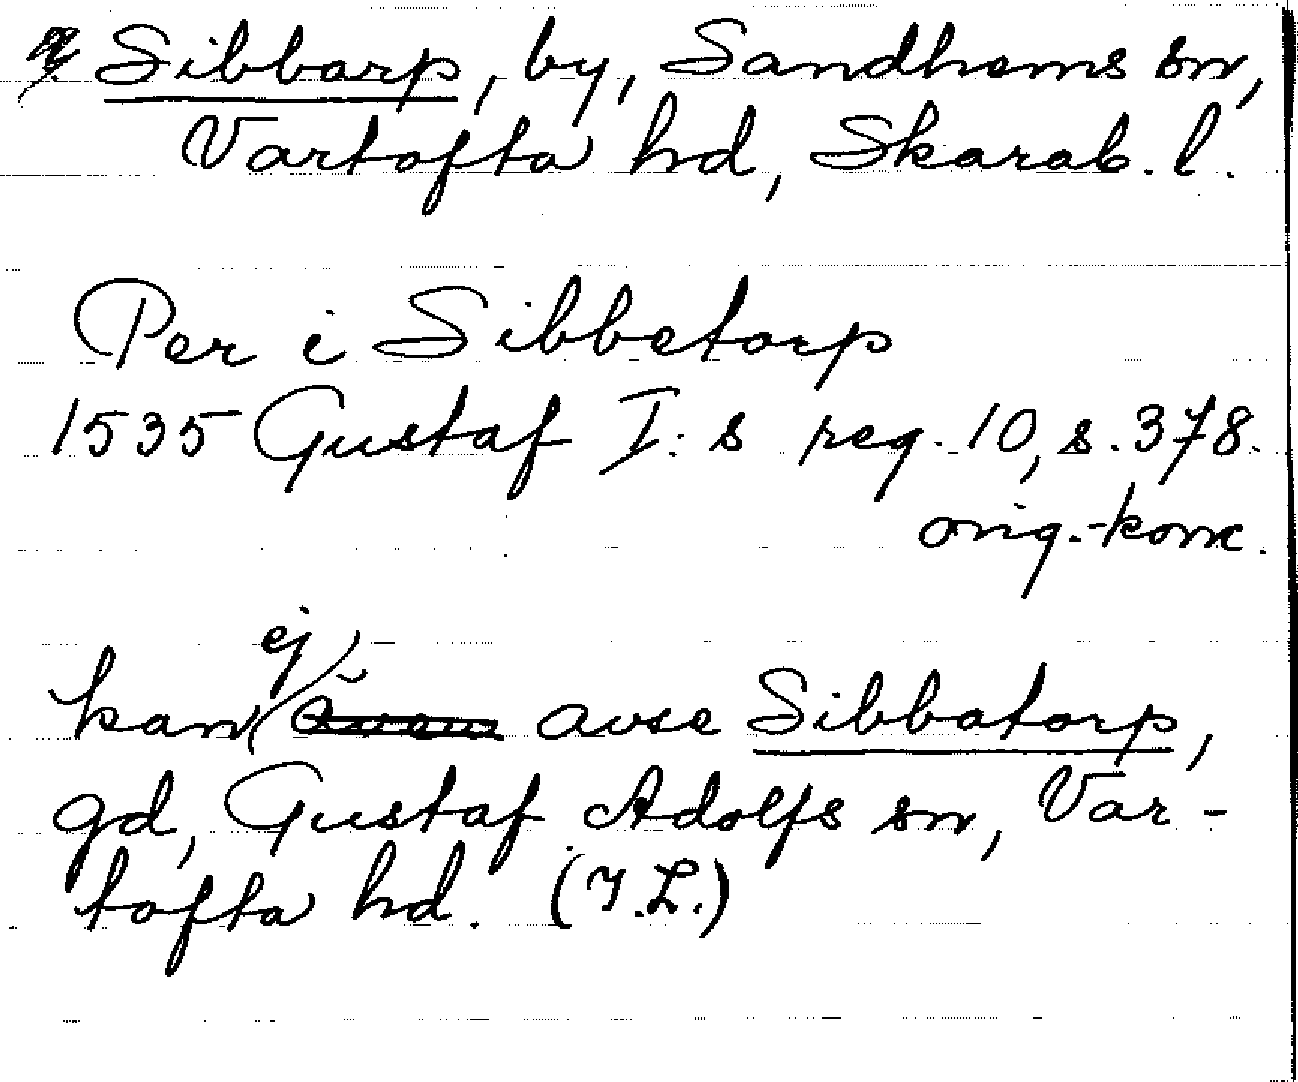 Sibbarp, by, Sandhems sn,
Vartofta hd, Skarab. l.
Per i Sibbetorp
1535 Gustaf I:s reg. 10, s. 378.
orig.-konc.
ej
kan även avse Sibbatorp,
gd, Gustaf Adolfs sn, Var-
tofta hd. (I.L.)